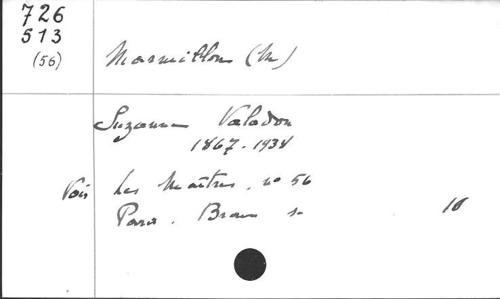 726
513
(56)
Marmillon (M)
Suzanne Valadon
1867-1938
Voir Les Maîtres, no 56
Paris. Braun s.